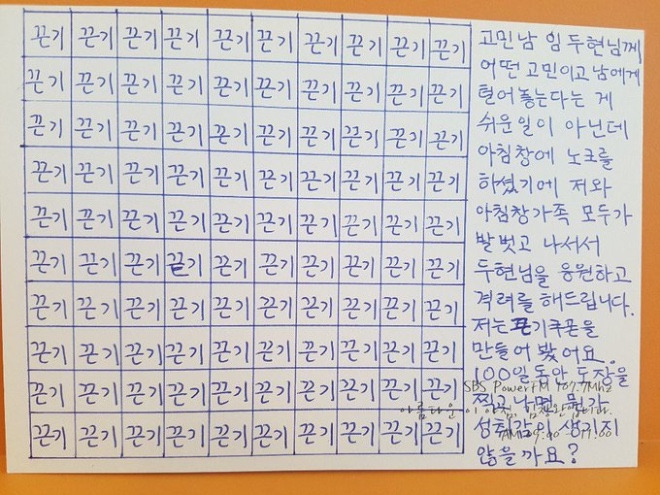 끈기 끈기 끈기 끈기 끈기 끈기 끈기 끈기 끈기 끈기
끈기 끈기 끈기 끈기 끈기 끈기 끈기 끈기 끈기 끈기
끈기 끈기 끈기 끈기 끈기 끈기 끈기 끈기 끈기 끈기
끈기 끈기 끈기 끈기 끈기 끈기 끈기 끈기 끈기 끈기
끈기 끈기 끈기 끈기 끈기 끈기 끈기 끈기 끈기 끈기
끈기 끈기 끈기 끈기 끈기 끈기 끈기 끈기 끈기 끈기
끈기 끈기 끈기 끈기 끈기 끈기 끈기 끈기 끈기 끈기
끈기 끈기 끈기 끈기 끈기 끈기 끈기 끈기 끈기 끈기
끈기 끈기 끈기 끈기 끈기 끈기 끈기 끈기 끈기 끈기
끈기 끈기 끈기 끈기 끈기 끈기 끈기 끈기 끈기 끈기
고민남 임두현님께
어떤 고민이고 남에게
털어 놓는다는 게
쉬운일이 아닌데
아침창에 노크를
하셨기에 저와
아침창가족 모두가
발벗고 나서서
두현님을 응원하고
격려를 해드립니다.
저는 끈기쿠폰을
만들어 봤어요.
100일동안 두장을
찍고나면 뭔가
성취감이 생기지
않을까요?
SBS Power FM 107.7Mhz
아름다운 이 아침, 김창완입니다.
AM 09:00 - 11:00